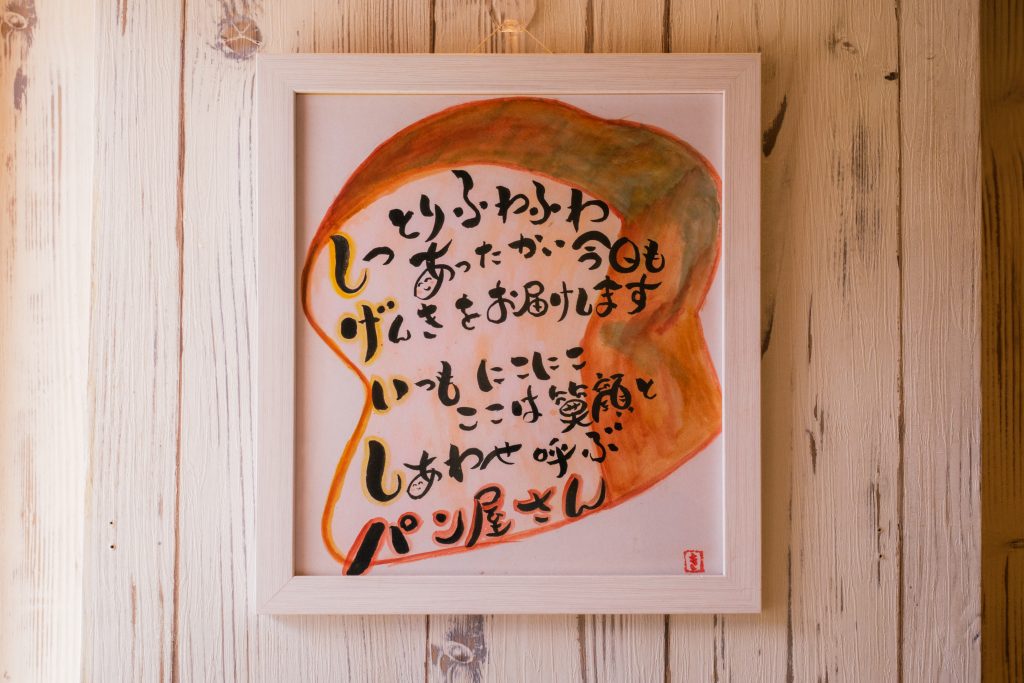 しっとりふわふわ
あったかい今日も
げんきをお届けします
いつもにこにこ
ここは笑顔と
しあわせ呼ぶ
パン屋さん